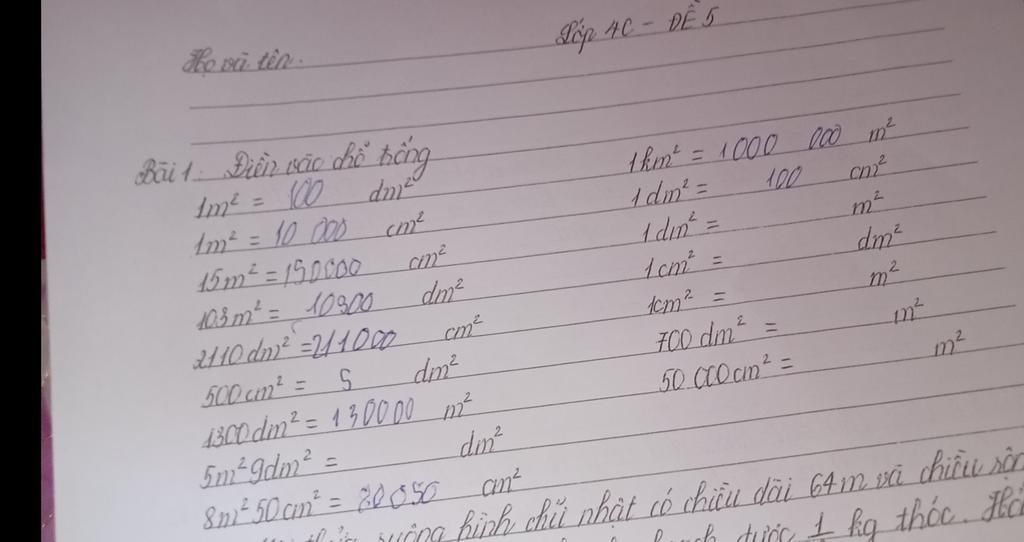 Lớp 4C - ĐỀ 5
Họ và tên.
Bài 1: Điền vào chỗ trống
1m² = 100 dm²
1m² = 10 000 cm²
15m² = 150000 cm²
103m² = 10300 dm²
2110dm² = 211000 cm²
500cm² = 5 dm²
1300dm² = 130000 m²
5m²9dm² = dm²
8m²50cm² = 80050 cm²
1km² = 1000 000 m²
1dm² = 100 cm²
1dm² = m²
1cm² = dm²
1cm² = m²
700dm² = m²
50 000cm² = m²
ruộng hình chữ nhật có chiều dài 64m và chiều rộn
được 1/ kg thóc. Hỏi